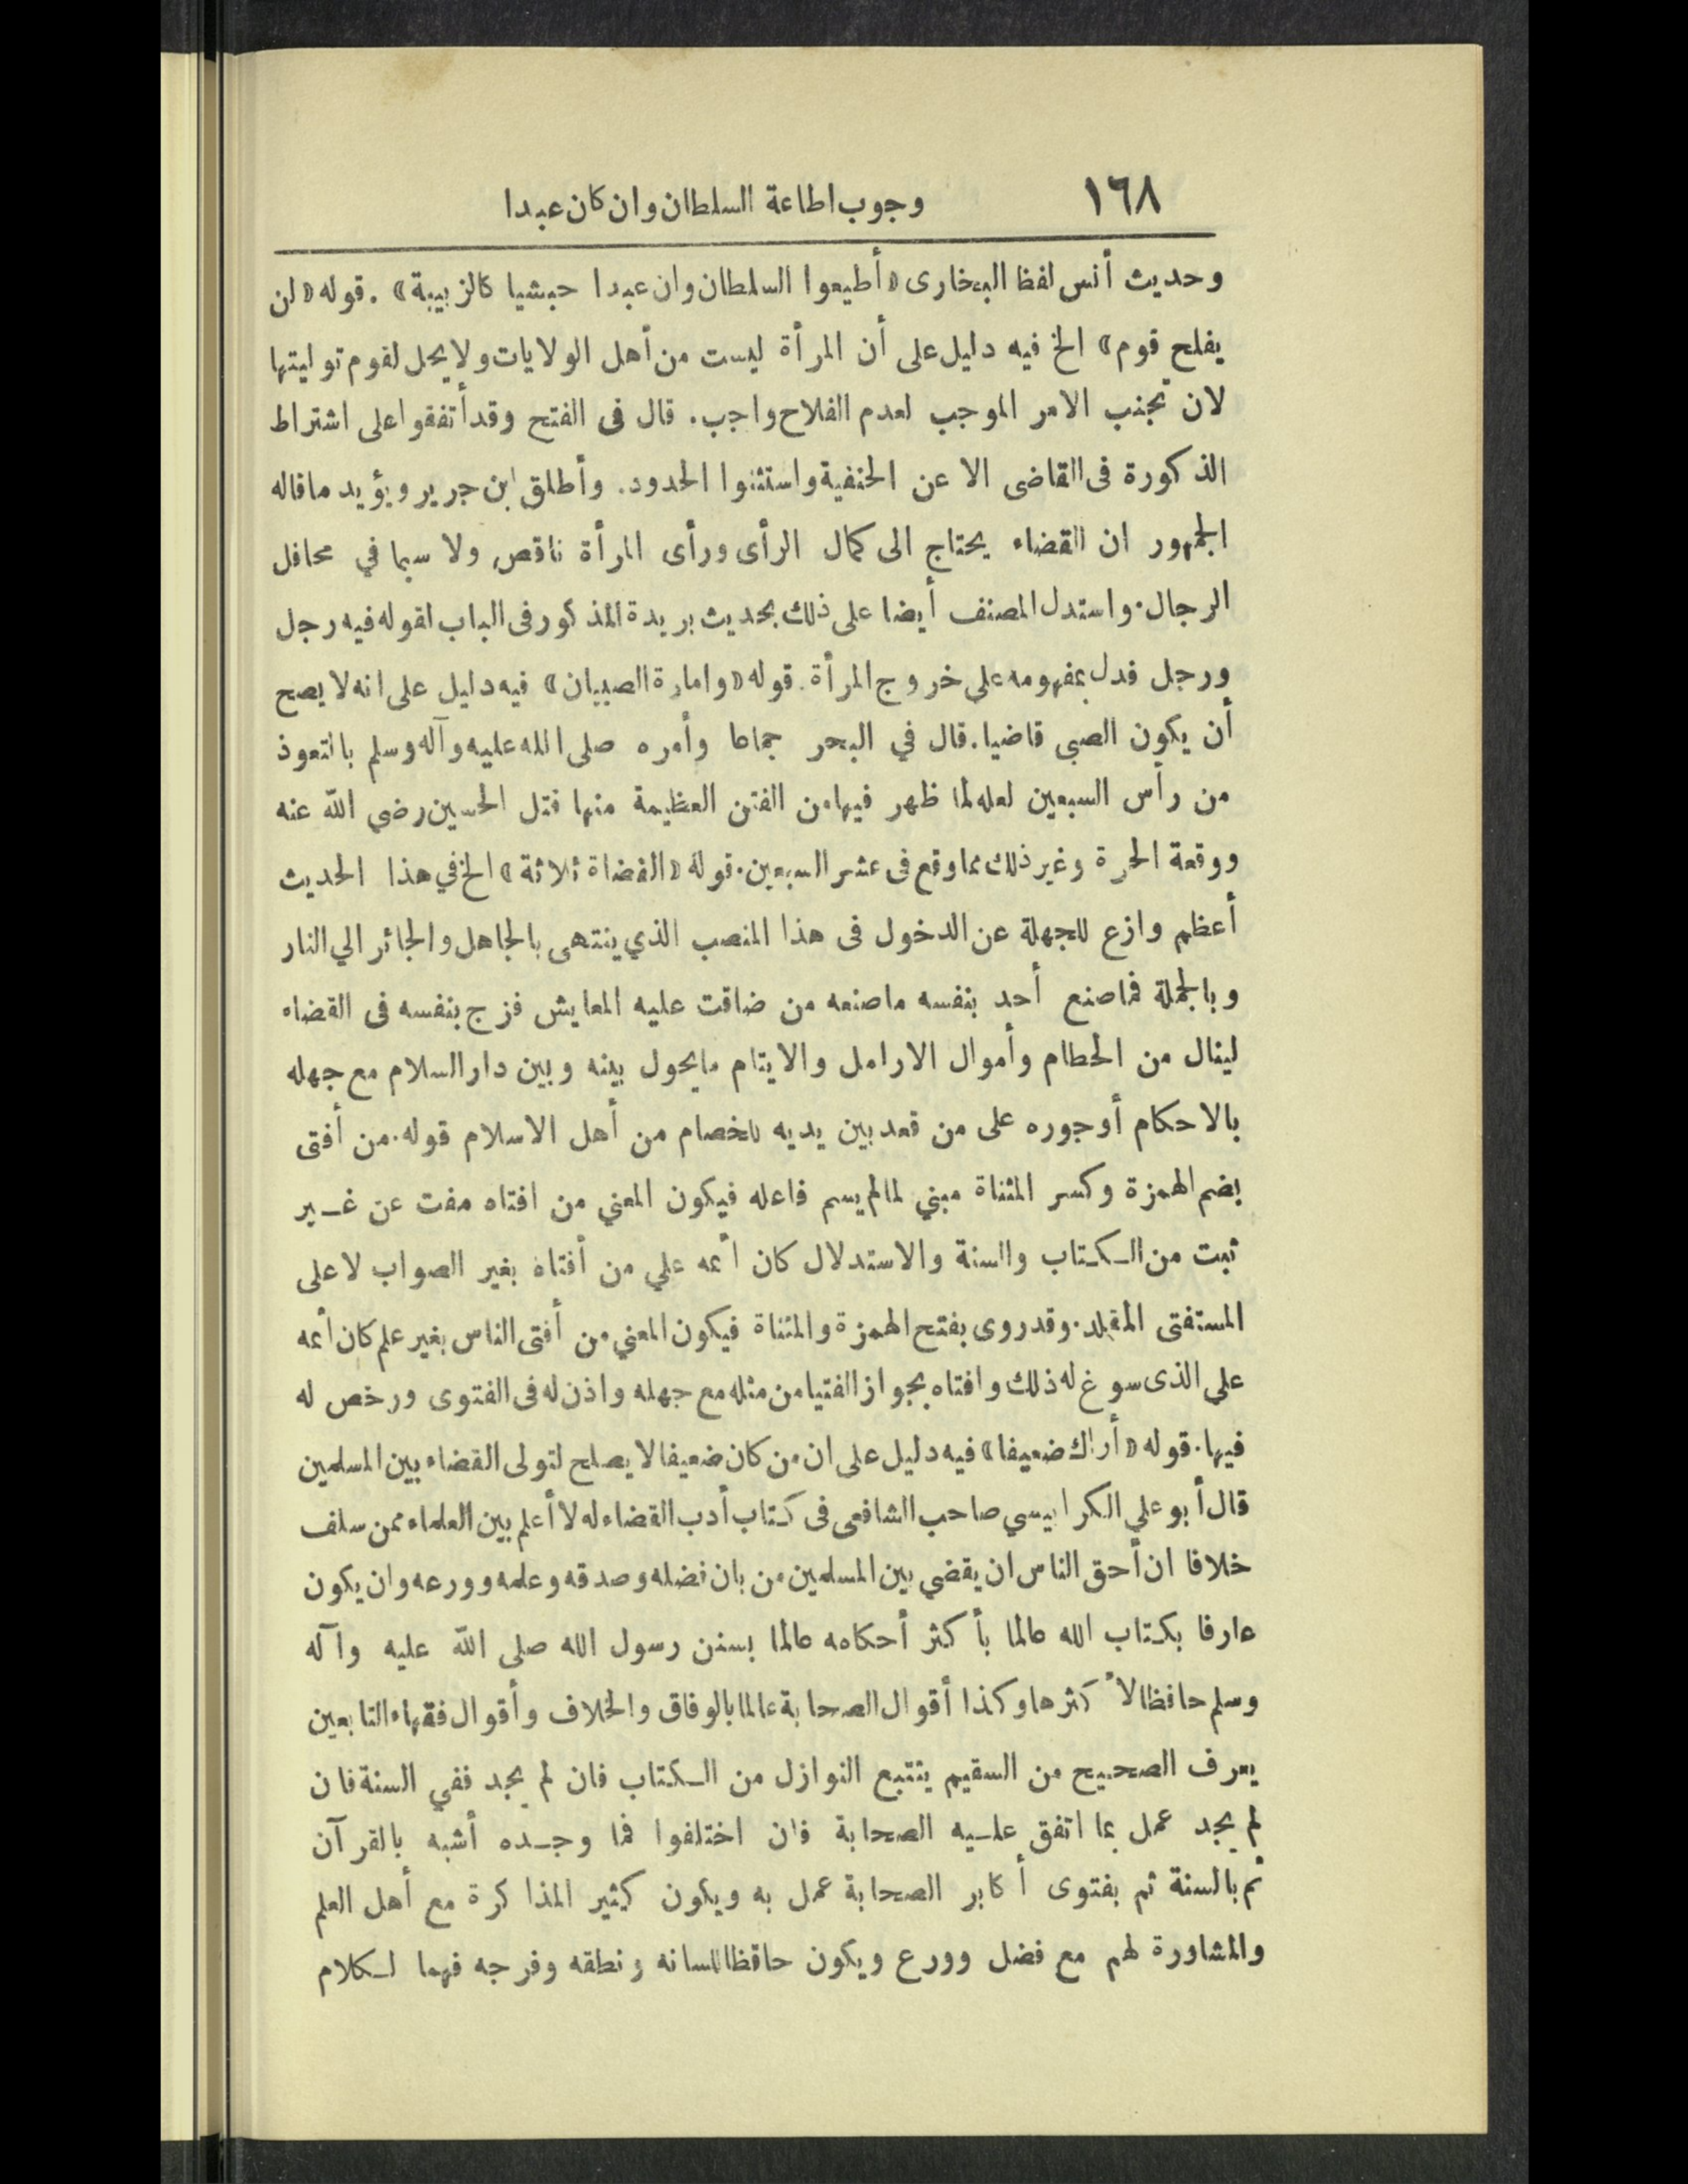 ١٦٨ وجوب اطاعة السلطان وان كان عبدا
وحديث أنس لفظ البخارى «أطيعوا السلطان وان عبدا حبشيا كالزبيبة» . قوله «لن
يفلح قوم» الخ فيه دليل على أن المرأة ليست من أهل الولايات ولا يحل لقوم توليتها
لان تجنب الامر الموجب لعدم الفلاح واجب. قال فى الفتح وقد أتفقوا على اشتراط
الذكورة فى القاضى الا عن الحنفية واستثنوا الحدود. وأطلق ابن جرير ويؤيد ماقاله
الجمهور ان القضاء يحتاج الى كمال الرأى ورأى المرأة ناقص ولا سيما في محافل
الرجال. واستدل المصنف أيضا على ذلك بحديث بريدة المذكور فى الباب لقوله فيه رجل
ورجل فدل بمفهومه على خروج المرأة. قوله «وامارة الصبيان» فيه دليل على انه لا يصح
أن يكون الصبى قاضيا. قال في البحر جماعا وأمره صلى الله عليه وآله وسلم بالتعوذ
من رأس السبعين لعله لما ظهر فيها من الفتن العظيمة منها قتل الحسين رضي الله عنه
ووقعة الحرة وغير ذلك مما وقع فى عشر السبعين. قوله «القضاة ثلاثة» الخ في هذا الحديث
أعظم وازع للجهلة عن الدخول فى هذا المنصب الذي ينتهى بالجاهل والجائر الي النار
وبالجملة فما صنع أحد بنفسه ماصنعه من ضاقت عليه المعايش فزج بنفسه فى القضاء
لينال من الحطام وأموال الارامل والايتام مايحول بينه وبين دار السلام مع جهله
بالاحكام أو جوره على من قعد بين يديه للخصام من أهل الاسلام قوله. من أفتى
بضم الهمزة وكسر المثناة مبني لمالم يسم فاعله فيكون المعني من افتاه مفت عن غــير
ثبت من الــكـتاب والسنة والاستدلال كان أثمه علي من أفتاه بغير الصواب لا على
المستفتى المقلد. وقد روى بفتح الهمزة والمثناة فيكون المعني من أفتى الناس بغير علم كان أثمه
على الذى سوغ له ذلك وافتاه بجواز الفتيا من مثله مع جهله واذن له فى الفتوى ورخص له
فيها. قوله «أراك ضعيفا» فيه دليل على ان من كان ضعيفا لا يصلح لتولى القضاء بين المسلمين
قال أبو علي الكرابيسي صاحب الشافعى فى كتاب أدب القضاء له لا أعلم بين العلماء ممن سلف
خلافا ان أحق الناس ان يقضي بين المسلمين من بان فضله وصدقه وعلمه وورعه وان يكون
عارفا بكتاب الله عالما بأكثر أحكامه عالما بسنن رسول الله صلى الله عليه وآله
وسلم حافظا لأكثرها وكذا أقوال الصحابة عالما بالوفاق والخلاف وأقوال فقهاء التابعين
يعرف الصحيح من السقيم يتتبع النوازل من الــكتاب فان لم يجد ففي السنة فان
لم يجد عمل بما اتفق علــيه الصحابة فان اختلفوا فما وجــده أشبه بالقرآن
ثم بالسنة ثم بفتوى أكابر الصحابة عمل به ويكون كثير المذاكرة مع أهل العلم
والمشاورة لهم مع فضل وورع ويكون حافظا للسانه ونطقه وفرجه فهما لــكلام